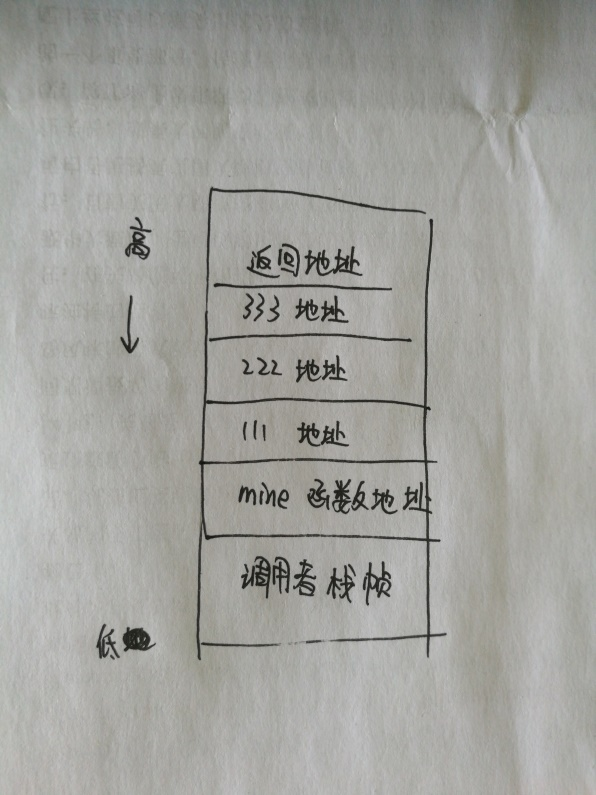 高
返回地址
333 地址
222 地址
111 地址
mine 函数地址
调用者栈帧
低